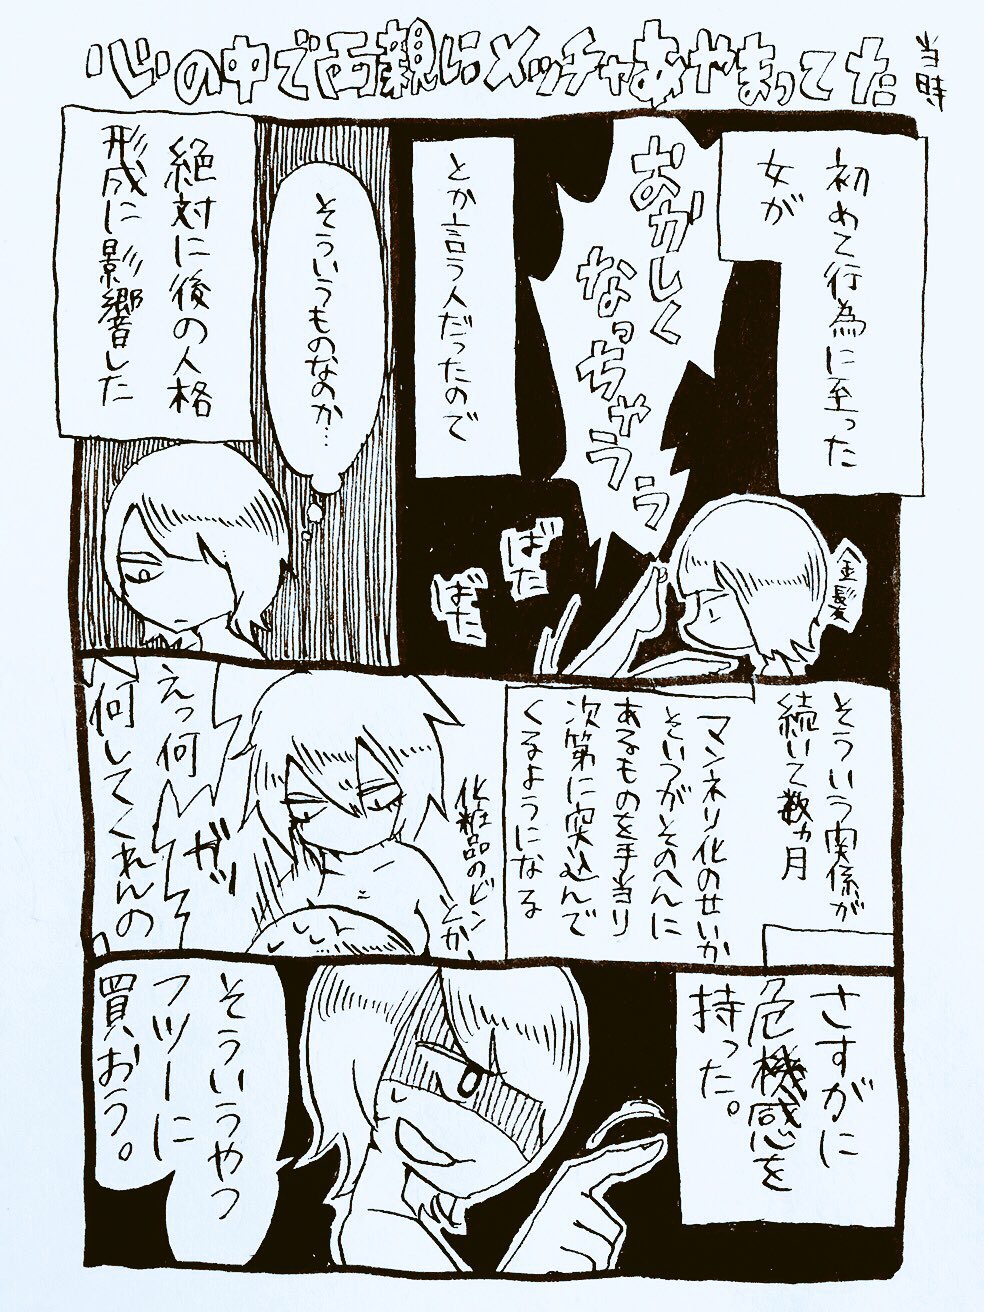 当時
心の中で両親にメッチャあやまってた
初めて行為に至った
女が
おかしく
なっちゃうぅぅ
金髪
ばた
ばた
とか言う人だったので
そういうものなのか…
絶対に後の人格
形成に影響した
そういう関係が
続いて数ヵ月
マンネリ化のせいか
そいつがそのへんに
あるものを手当り
次第に突込んで
くるようになる
化粧品のビン
とか、
ガッ
えっ何
何してくれんの
さすがに
危機感を
持った。
そういうやつ
フツーに
買おう。